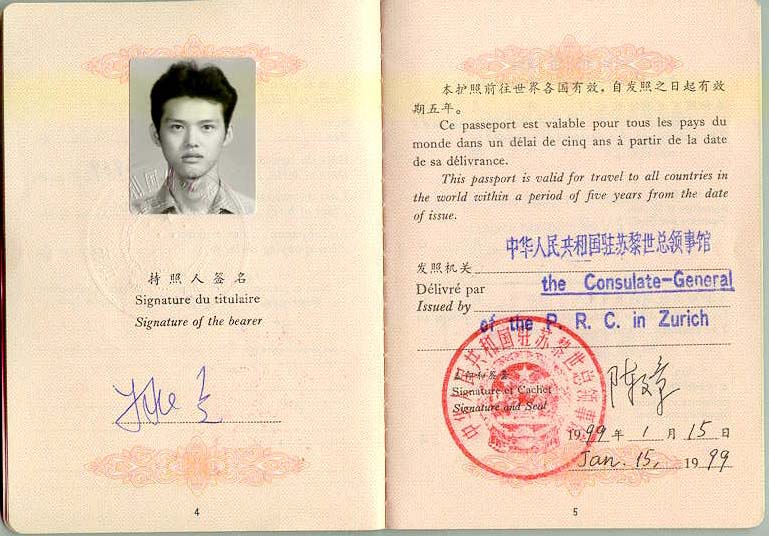 持照人签名
Signature du titulaire
Signature of the bearer
4
本护照前往世界各国有效,自发照之日起有效
期五年。
Ce passeport est valable pour tous les pays du
monde dans un délai de cinq ans à partir de la date
de sa délivrance.
This passport is valid for travel to all countries in
the world within a period of five years from the date
of issue.
中华人民共和国驻苏黎世总领事馆
发照机关
Délivré par
the Consulate-General
Issued by
of the P. R. C. in Zurich
中华人民共和国驻苏黎世总领事馆
Signature et Cachet
Signature and Seal
1999年 1 月 15 日
Jan. 15, 1999
5